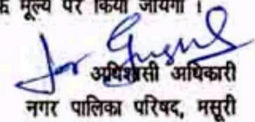 के मूल्य पर किया जायेगा ।
for
अधिशासी अधिकारी
नगर पालिका परिषद, मसूरी